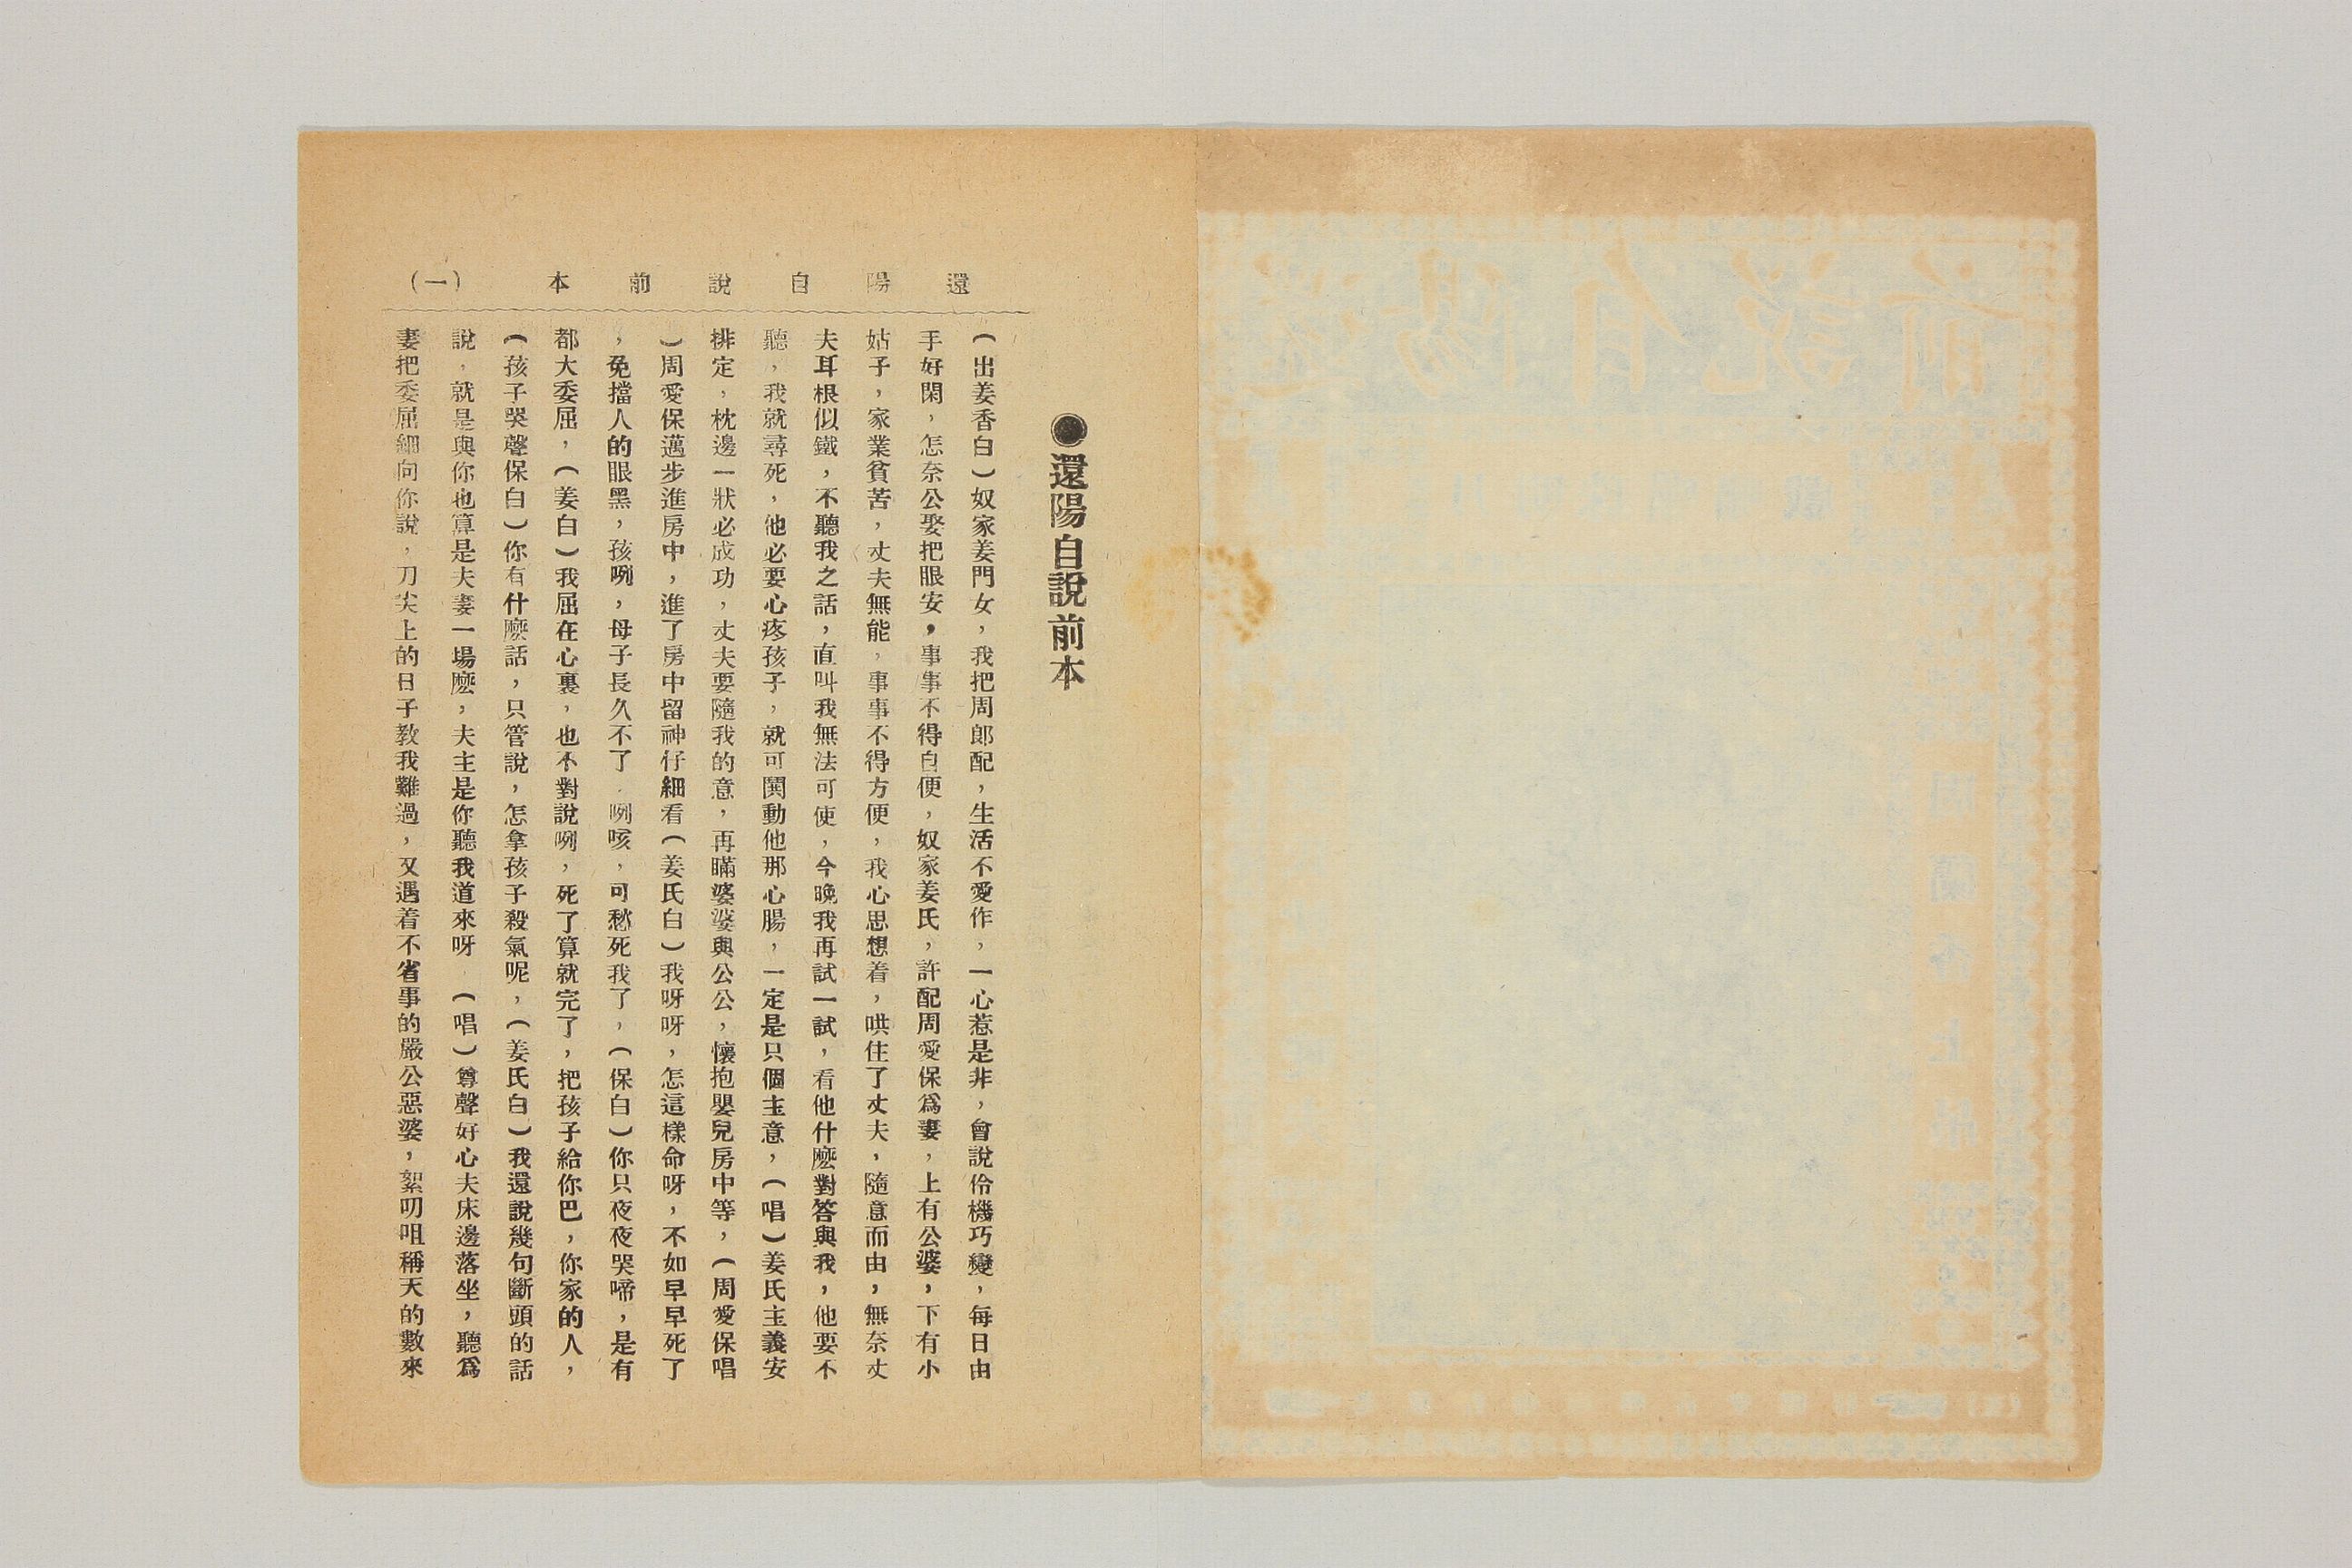 還陽自說前本（一）
●還陽自說前本
（出姜香白）奴家姜門女，我把周郎配，生活不愛作，一心惹是非，會說伶機巧變，每日由
手好閑，怎奈公娶把眼安，事事不得自便，奴家姜氏，許配周愛保爲妻，上有公婆，下有小
姑子，家業貧苦，丈夫無能，事事不得方便，我心思想着，哄住了丈夫，隨意而由，無奈丈
夫耳根似鐵，不聽我之話，直叫我無法可使，今晚我再試一試，看他什麽對答與我，他要不
聽，我就尋死，他必要心疼孩子，就可鬨動他那心腸，一定是只個主意，（唱）姜氏主義安
排定，枕邊一狀必成功，丈夫要隨我的意，再瞞婆婆與公公，懷抱嬰兒房中等，（周愛保唱
）周愛保邁步進房中，進了房中留神仔細看（姜氏白）我呀呀，怎這樣命呀，不如早早死了
，免擋人的眼黑，孩咧，母子長久不了，咧咳，可愁死我了，（保白）你只夜夜哭啼，是有
都大委屈，（姜白）我屈在心裏，也不對說咧，死了算就完了，把孩子給你巴，你家的人，
（孩子哭聲保白）你有什麽話，只管說，怎拿孩子殺氣呢，（姜氏白）我還說幾句斷頭的話
說，就是與你也算是夫妻一場麽，夫主是你聽我道來呀，（唱）尊聲好心夫床邊落坐，聽爲
妻把委屈細向你說，刀尖上的日子教我難過，又遇着不省事的嚴公惡婆，絮叨咀稱天的數來